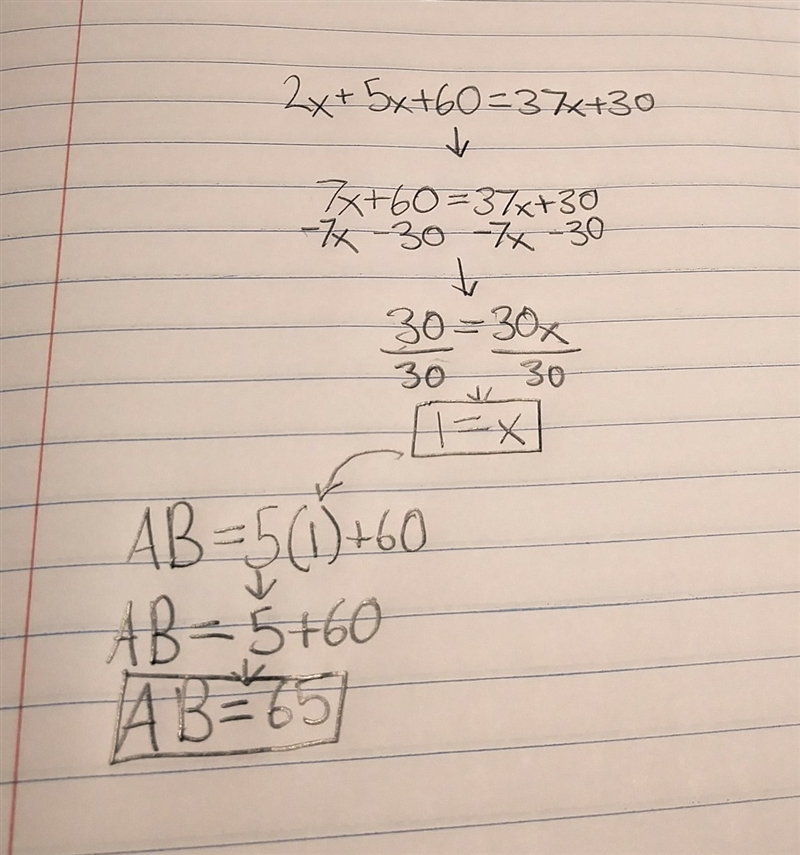 2x+5x+60=37x+30
↓
7x+60=37x+30
-7x -30 -7x -30
↓
30=30x
30 30
↓
1=x
AB=5(1)+60
↓
AB=5+60
↓
AB=65